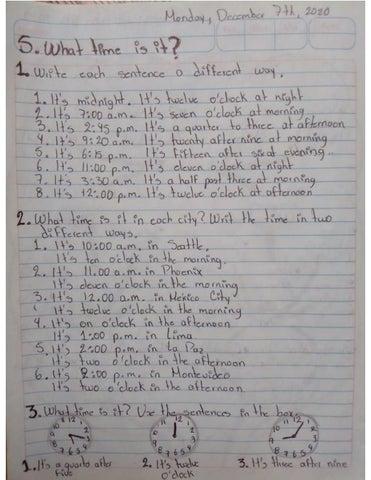 Monday, December 7th, 2020
5. What time is it?
1. Write each sentence a different way.
1. It's midnight. It's twelve o'clock at night
2. It's 7:00 a.m. It's seven o'clock at morning
3. It's 2:45 p.m. It's a quarter to three at afternoon
4. It's 9:20 a.m. It's twenty after nine at morning
5. It's 6:15 p.m. It's fifteen after sixst evening..
6. It's 11:00 p.m. It's eleven o'clock at night
7. It's 3:30 a.m. It's a half post three at morning
8. It's 12:00 p.m. It's twelve o'clock at afternoon
2. What time is it in each city? Writ the time in two
different ways.
1. It's 10:00 a.m. in Seattle.
It's ten o'clock in the morning.
2. It's 11.00 a.m. in Phoenix
It's eleven o'clock in the morning
3. It's 12.00 a.m. in Mexico City
It's twelve o'clock in the morning
4. It's on o'clock in the afternoon
It's 1:00 p.m. in Lima
5. It's 2:00 p.m. in La Paz
It's two o'clock in the afternoon
6. It's 2:00 p.m. in Montevideo
It's two o'clock in the afternoon
3. What time is it? Use the sentences in the box
12 1 2 3 4 5 6 7 8 9 10 11
12 1 2 3 4 5 6 7 8 9 10 11
12 1 2 3 4 5 6 7 8 9 10 11
1. It's a quarto after
five
2. It's twelve
o'clock
3. It's three after nine